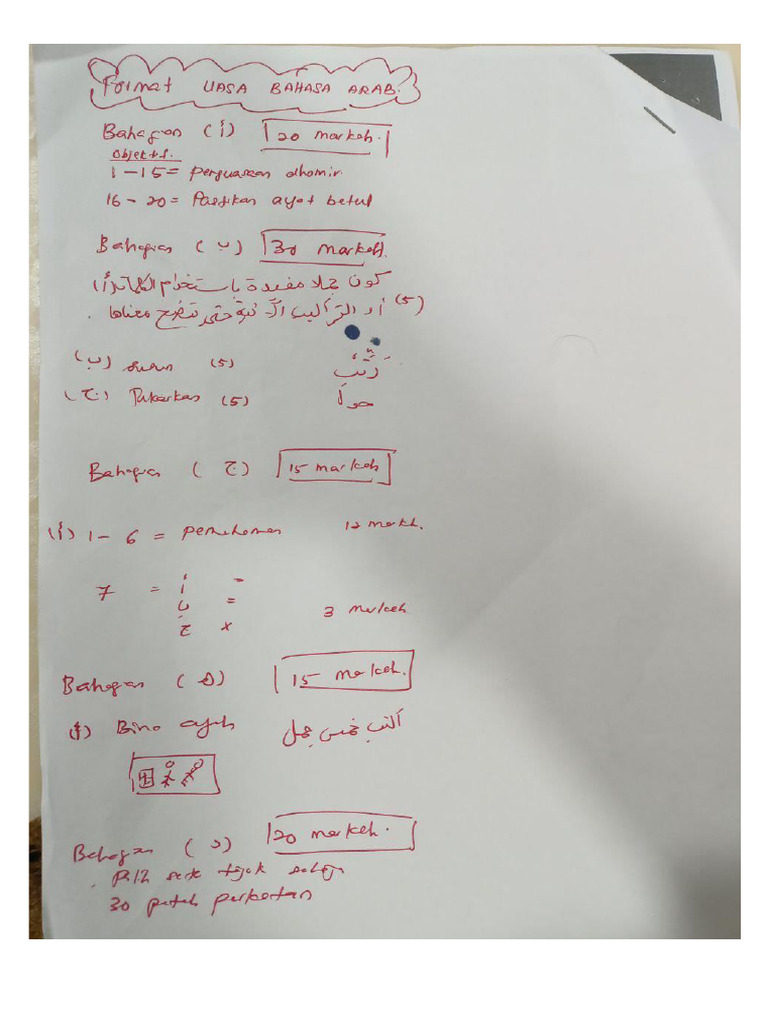 Format UASA BAHASA ARAB.
Bahagian (أ) 20 markah.
Objektif.
1-15 = Penguasaan dhomir
16-20 = Pastikan ayat betul
Bahagian (ب) 30 markah.
(أ) كون جملا مفيدة باستخدام الكلمات
أو التراكيب الآتية حتى تتضح معناها. (5)
(ب) susun (5) رَتِّبْ
(ج) Tukarkan (5) حول
Bahagian (ج) 15 markah
(أ) 1-6 = pemahaman 12 markh.
7 = أ -
ب =
ج x
3 markah
Bahagian (د) 15 markah.
(أ) Bina ayat اكتب خمس جمل
Bahagian (د) 20 markah.
sahaja
30 patah perkataan